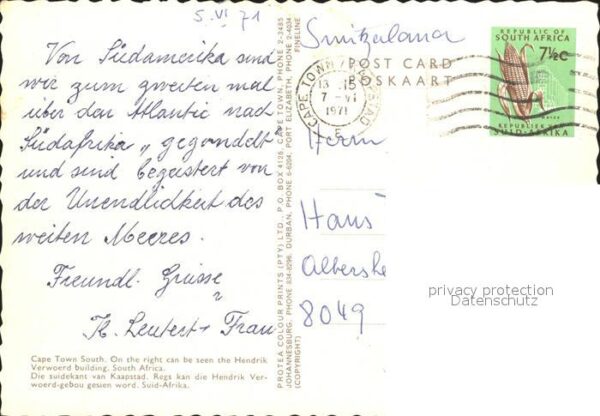 5. VI 71
Von Südamerika sind
wir zum zweiten mal
über den Atlantic nach
Südafrika „gegondelt"
und sind begeistert von
der Unendlichkeit des
weiten Meeres.
Freundl. Grüsse
K. Leutert + Frau
Cape Town South. On the right can be seen the Hendrik
Verwoerd building. South Africa.
Die suidekant van Kaapstad. Regs kan die Hendrik Ver-
woerd-gebou gesien word. Suid-Afrika.
PROTEA COLOUR PRINTS (PTY) LTD., P.O. BOX 4126, CAPE TOWN, PHONE 2-3485
JOHANNESBURG, PHONE 834-8296. DURBAN, PHONE 6-6204. PORT ELIZABETH, PHONE 2-4034
(COPYRIGHT) FINELINE
Switzerland
POST CARD
POSKAART
CAPE TOWN
13 15
7 - VI
1971
E
REPUBLIC OF
SOUTH AFRICA
7½c
REPUBLIEK VAN
SUID-AFRIKA
Herrn
Hans
Albershe
8049
privacy protection
Datenschutz